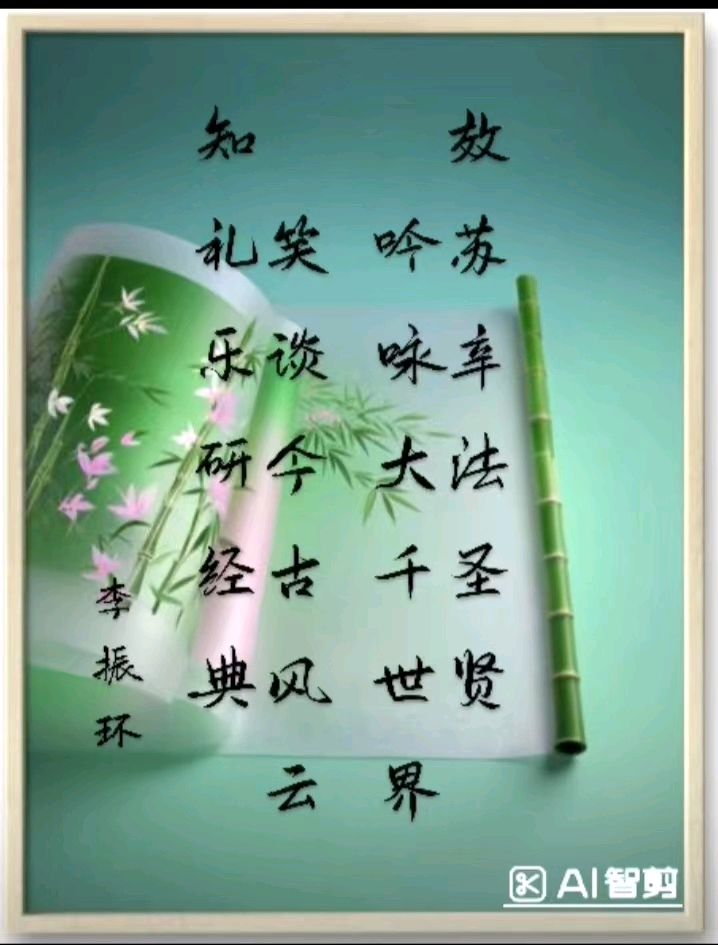 效苏辛法圣贤
吟咏大千世界
笑谈今古风云
知礼乐研经典
李振环
AI智剪